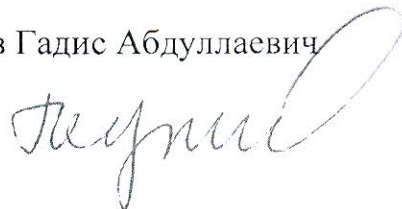 в Гадис Абдуллаевич